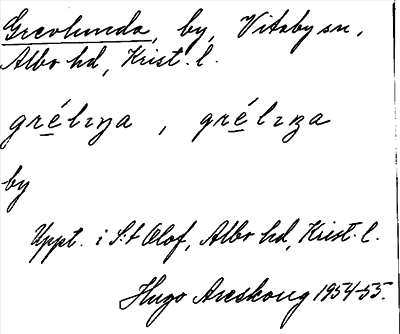 Grevlunda, by, Vitaby sn,
Albo hd, Krist. l.
gré̲lıŋa, gré̲lıŋa
by
Uppt. i S:t Olof, Albo hd, Krist. l.
Hugo Areskoug 1954-55.